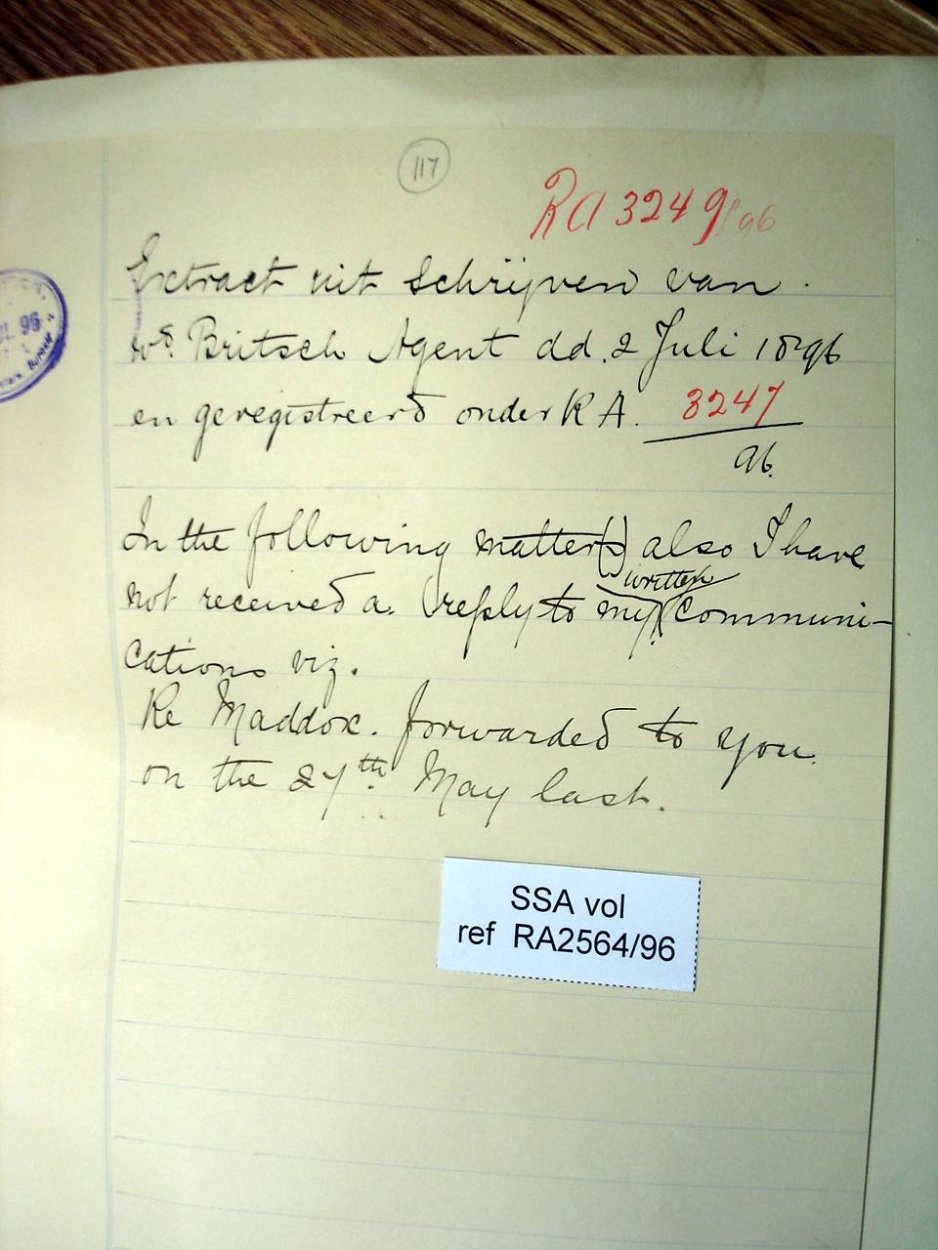 117
RA 3249/96
Extract uit schrijven van
Britsch Agent dd. 2 Juli 1896
en geregistreerd onder RA. 3247
96.
In the following matter(s) also I have
written
not received a reply to my communi-
cations viz.
Re Maddox. forwarded to you
on the 27th. May last.
SSA vol
ref RA2564/96
L 96